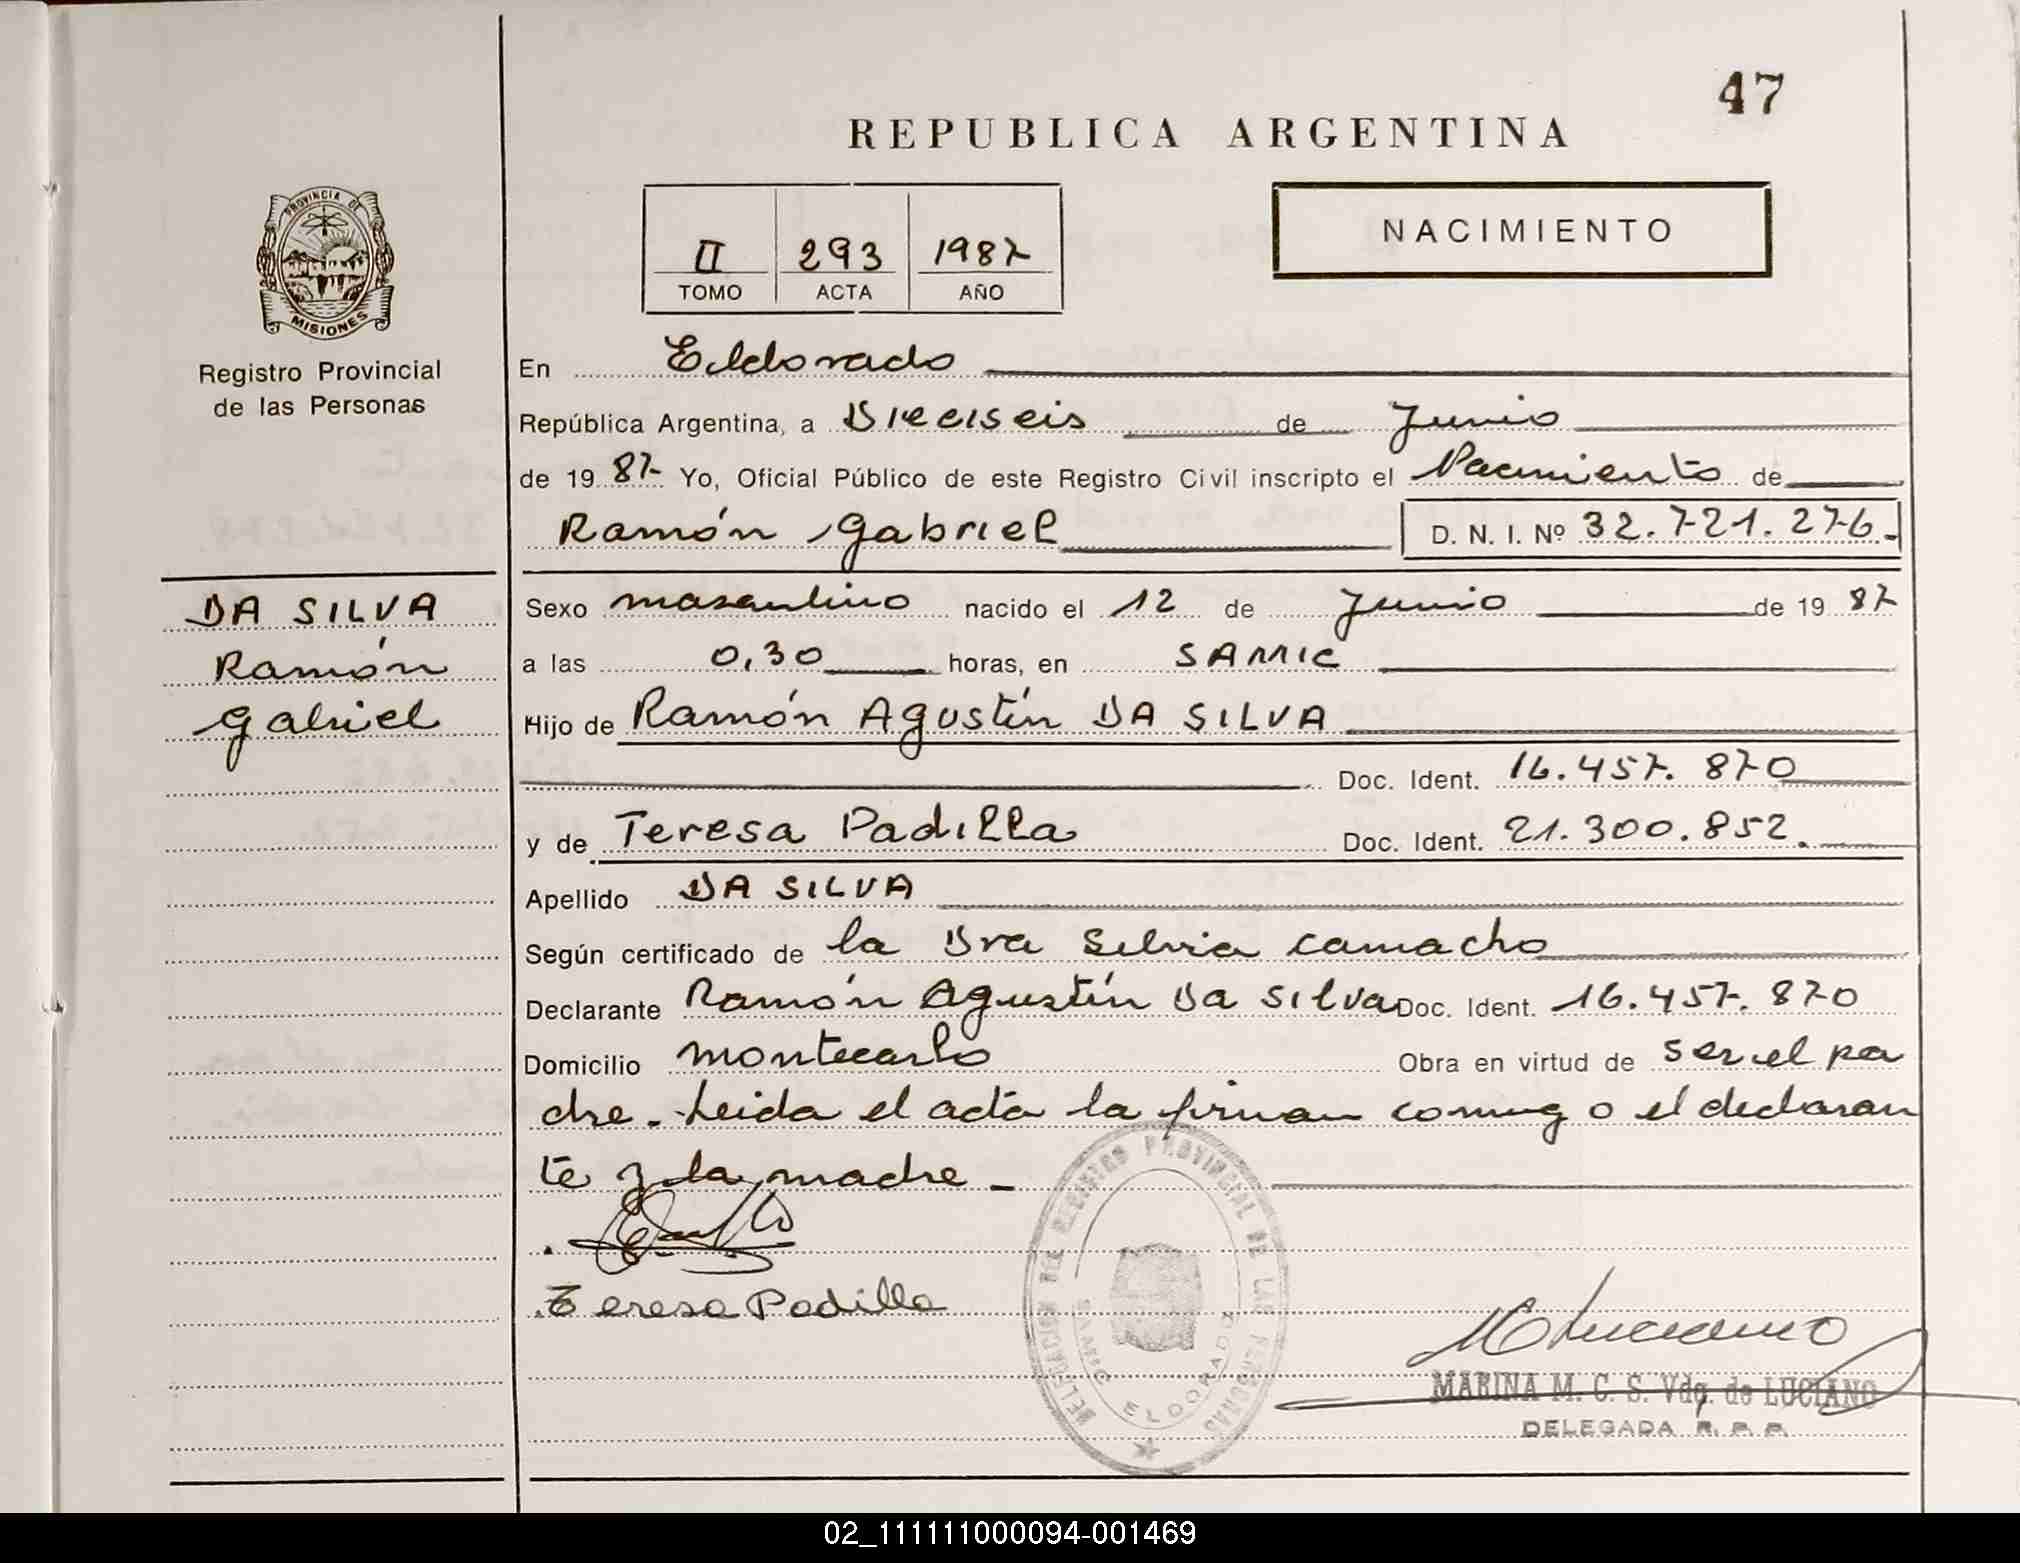 47
REPUBLICA ARGENTINA
PROVINCIA DE
MISIONES
Registro Provincial
de las Personas
II 293 1987
TOMO ACTA AÑO
NACIMIENTO
En Eldorado
República Argentina, a Dieciseis de Junio
de 1987 Yo, Oficial Público de este Registro Civil inscripto el Nacimiento de
Ramón Gabriel D. N. I. Nº 32.721.276.
DA SILVA
Ramón
Gabriel
Sexo masculino nacido el 12 de Junio de 1987
a las 0,30 horas, en SAMIC
Hijo de Ramón Agustín DA SILVA
Doc. Ident. 16.457.870
y de Teresa Padilla Doc. Ident. 21.300.852.
Apellido DA SILVA
Según certificado de la Dra Silvia Camacho
Declarante Ramón Agustín Da Silva Doc. Ident. 16.457.870
Domicilio Montecarlo Obra en virtud de ser el pa
dre. Leida el acta la firman conmigo el declaran
te y la madre
Teresa Padilla
DELEGACION DEL REGISTRO PROVINCIAL DE LAS PERSONAS
SAMIC ELDORADO
MARINA M. C. S. Vda. de LUCIANO
DELEGADA R. P. P.
02_111111000094-001469